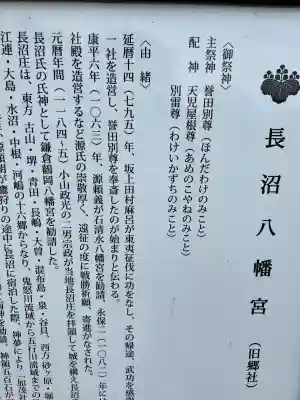 長沼八幡宮
(旧郷社)
〈御祭神〉
主祭神 誉田別尊(ほんだわけのみこと)
配神 天児屋根尊(あめのこやねのみこと)
別雷尊(わけいかずちのみこと)
〈由緒〉
延暦十四(七九五)年、坂上田村麻呂が東夷征伐に功をなし、その帰途、武功を感
一社を造営し、誉田別尊を奉斎したのが始まりと伝わる。
康平六年(一〇六三)年、源頼義が石清水八幡宮を勧請、永保二(一〇八二)年に
社殿を造営するなど源氏の崇敬厚く、遠征の度に戦勝祈願、寄進がなされた。
元暦年間(一一八四~五)小山政光の二男宗政が当地長沼庄を拝領して城を構え長沼
長沼氏の氏神として鎌倉鶴岡八幡宮を勧請した。
長沼庄は、東方・古山・堺・青田・長嶋・大曽・混布島・泉・谷貝、西方砂ヶ原・
江連・大島・水沼・中根・河嶋の十六郷からなり、鬼怒川流域から五行川流域までの
狩りの途中に長沼に宿泊した際、神夢により「加茂社